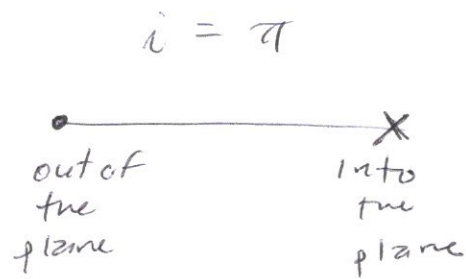 i = π
out of
the
plane
into
the
plane